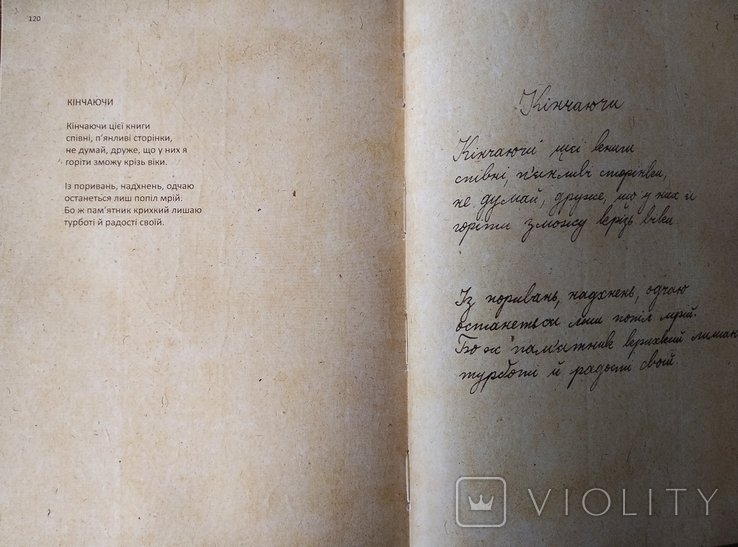 120
КІНЧАЮЧИ
Кінчаючи цієї книги
співні, п'янливі сторінки,
не думай, друже, що у них я
горіти зможу крізь віки.
Із поривань, надхнень, одчаю
останеться лиш попіл мрій.
Бо ж пам'ятник крихкий лишаю
турботі й радості своїй.
Кінчаючи
Кінчаючи цієї книги
співні, п'янливі сторінки,
не думай, друже, що у них я
горіти зможу крізь віки.
Із поривань, надхнень, одчаю
останеться лиш попіл мрій.
Бо ж пам'ятник крихкий лишаю
турботі й радости своїй.
VIOLITY